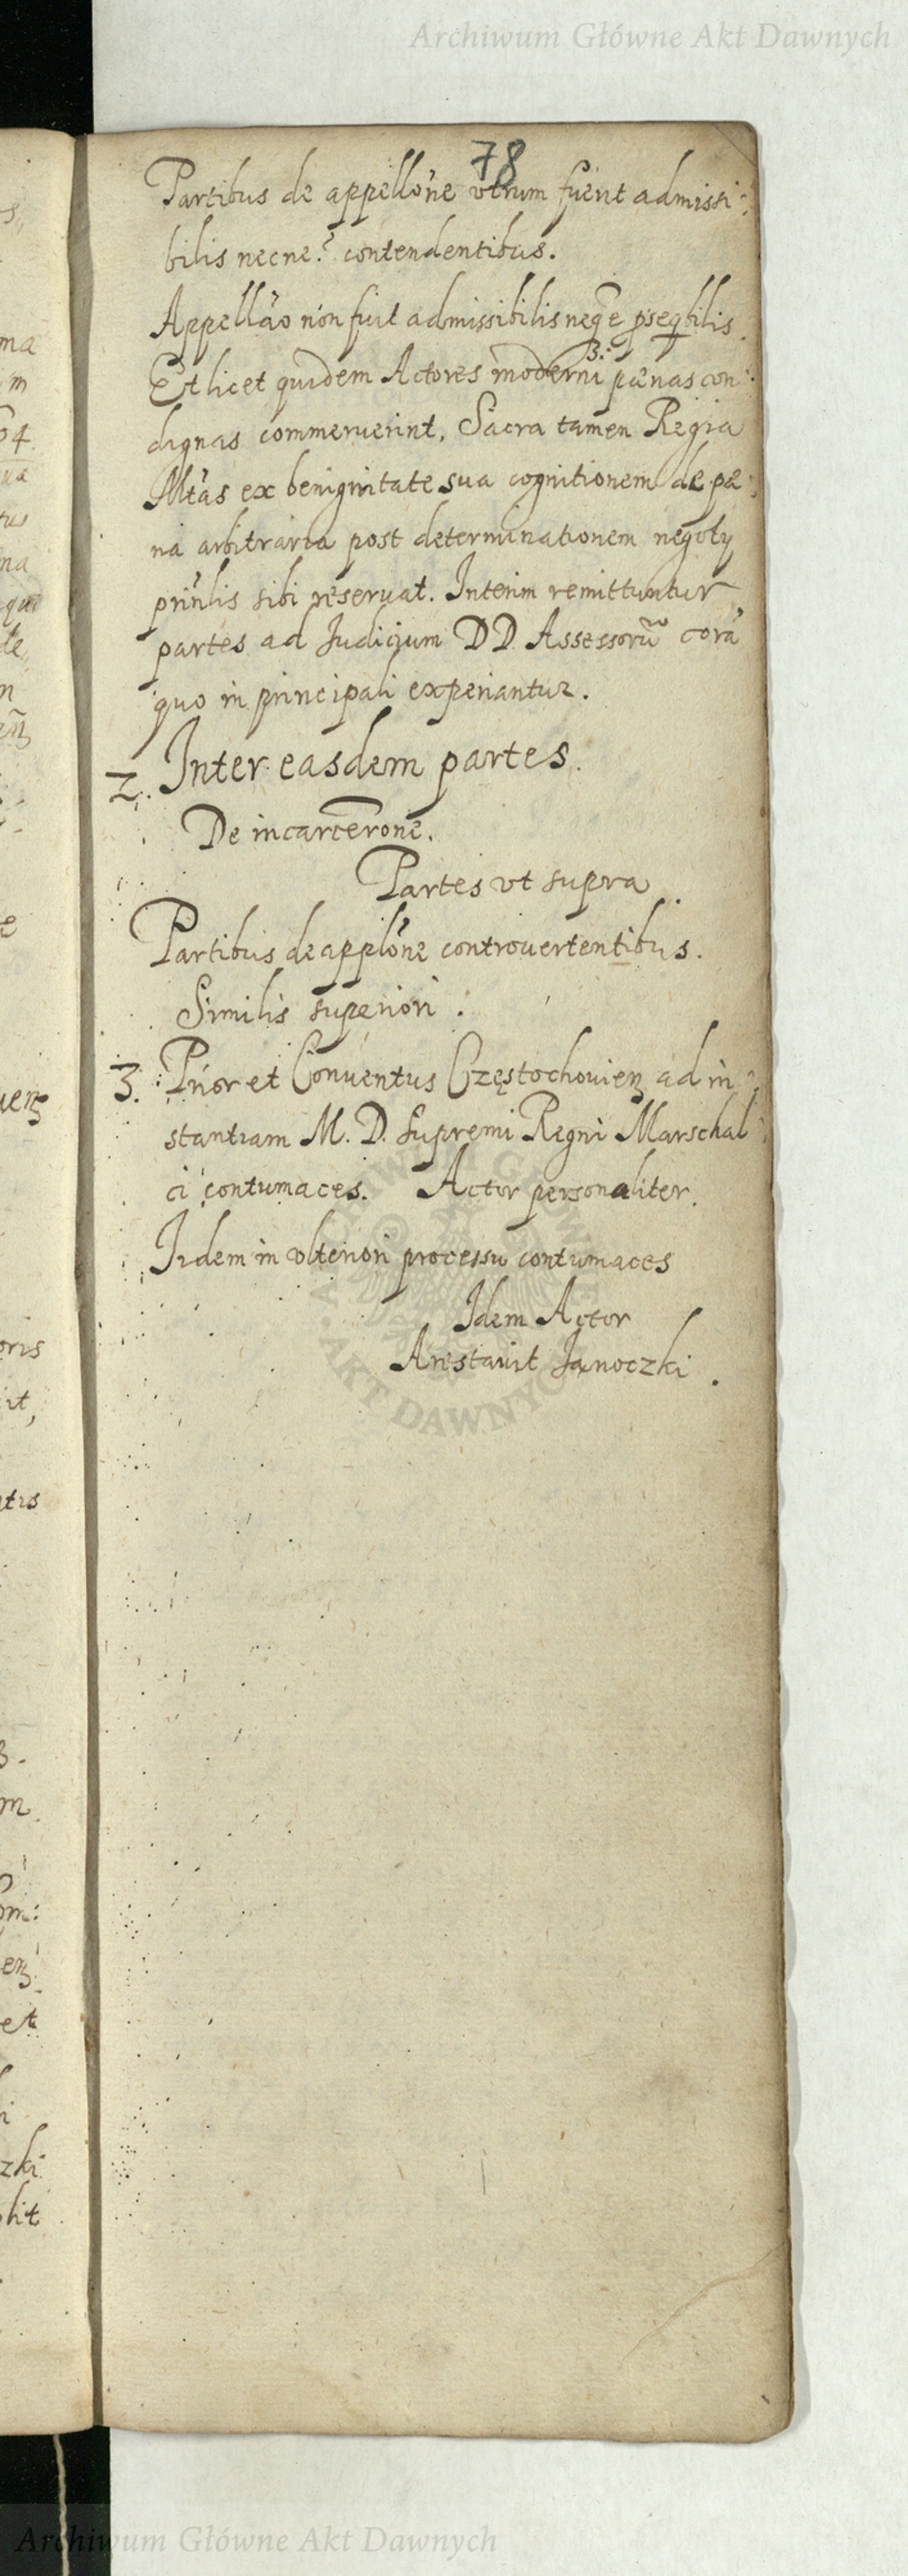 Archiwum Główne Akt Dawnych
78
Partibus de appellõne vtrum fuerit admissi:
bilis necne? contendentibus.
Appellão non fuit admissibilis neq̃e pseqbilis.
Et licet quidem Actores moderni 3: pænas con:
dignas commeruerint, Sacra tamen Regia
Mtas ex benignitate sua cognitionem de pæ:
na arbitraria post determinationem negoty
prinlis sibi reseruat. Interim remittuntur
partes ad Judicium DD. Assessorũ corã
quo in principali experiantur.
2. Inter easdem partes.
De incarcerone.
Partes vt supra
Partibus de applõne controuertentibus.
Similis superiori.
3. Prior et Conuentus Częstochouienz ad in:
stantiam M. D. Supremi Regni Marschal:
ci contumaces. Actor personaliter.
Iidem in vlteriori processu contumaces
Idem Actor
Arestauit Janoczki.
Archiwum Główne Akt Dawnych